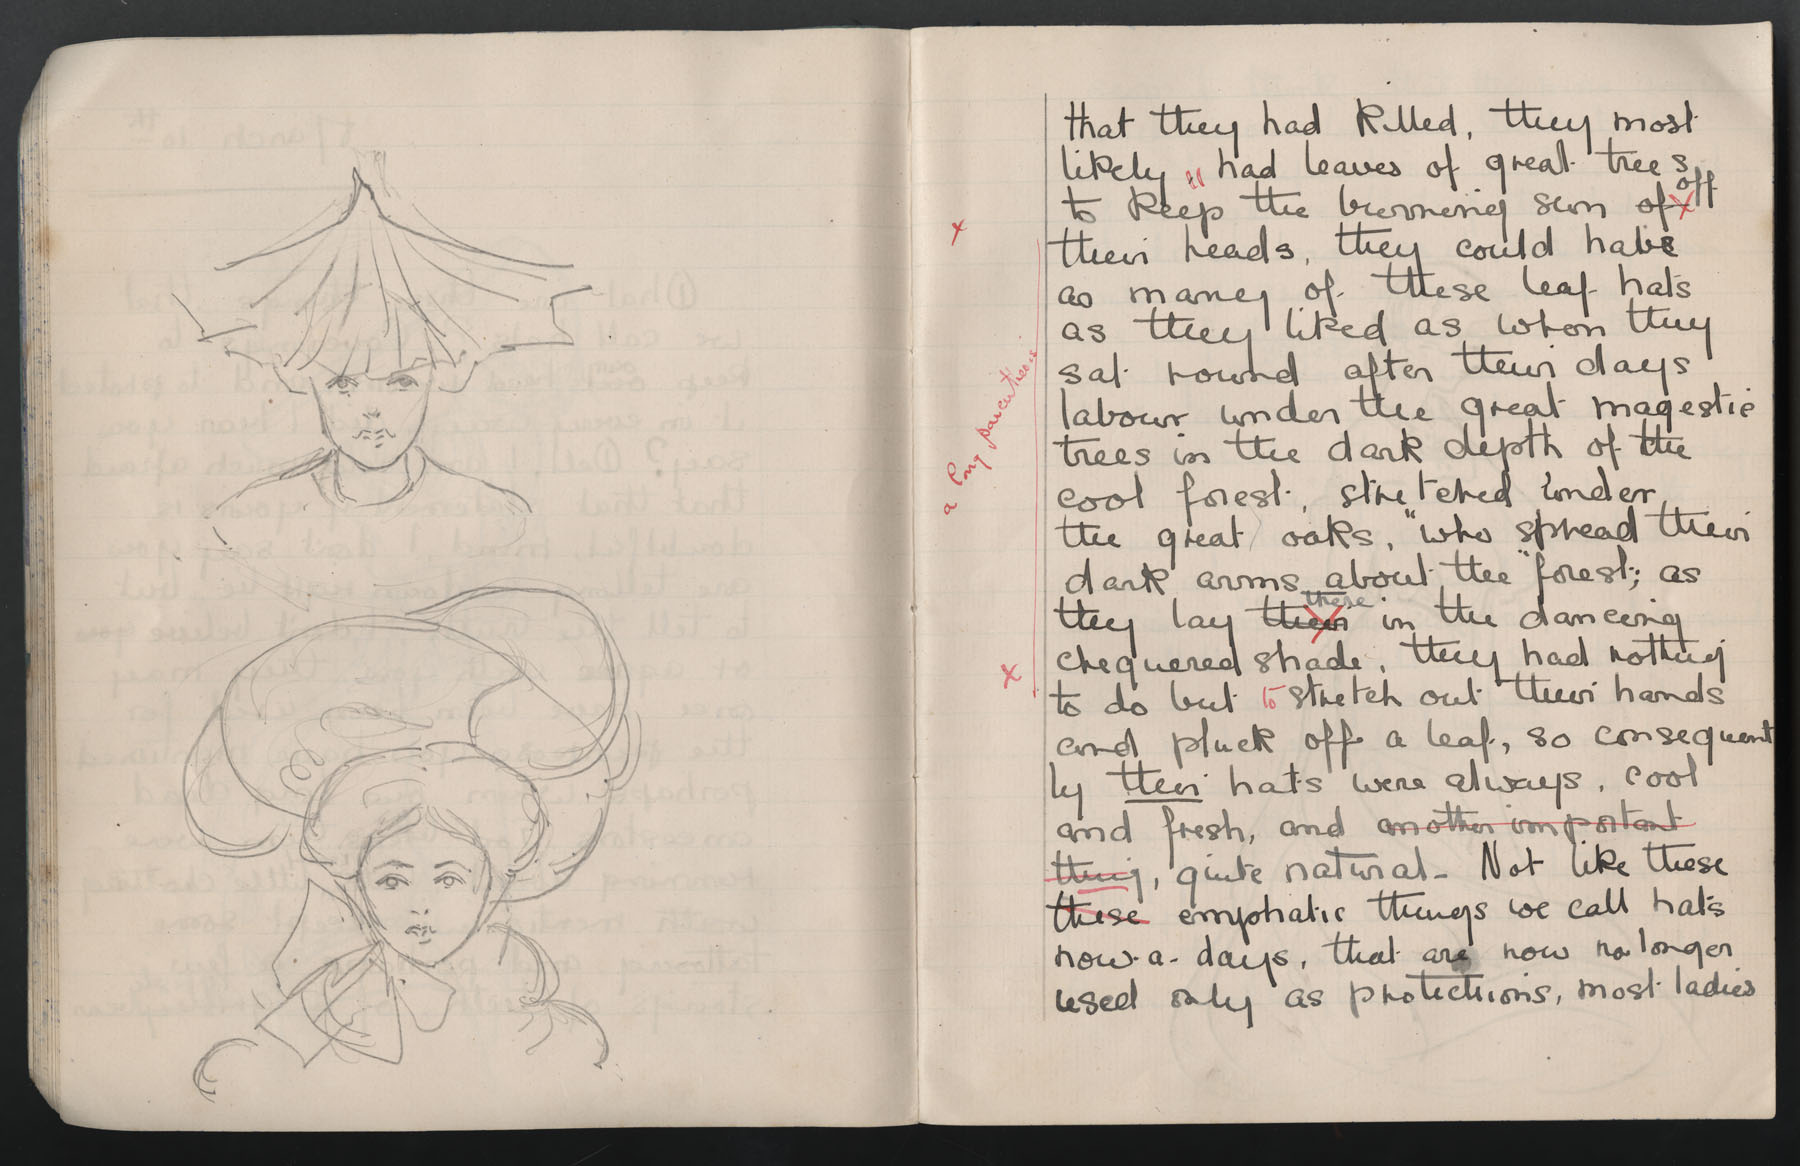 that they had killed, they most
likely " had leaves of great trees
to keep the burning sun of off
their heads, they could have
as many of these leaf hats
as they liked as when they
sat round after their days
labour under the great magestic
trees in the dark depth of the
cool forest, stretched under
the great oaks, "who spread their
dark arms about the" forest; as
they lay their there in the dancing
chequered shade, they had nothing
to do but to stretch out their hands
and pluck off a leaf, so consequent
ly their hats were always, cool
and fresh, and another important
thing, quite natural- Not like these
these emphatic things we call hats
now-a-days, that are now no longer
used only as protections, most ladies
x
a long parenthesis
x